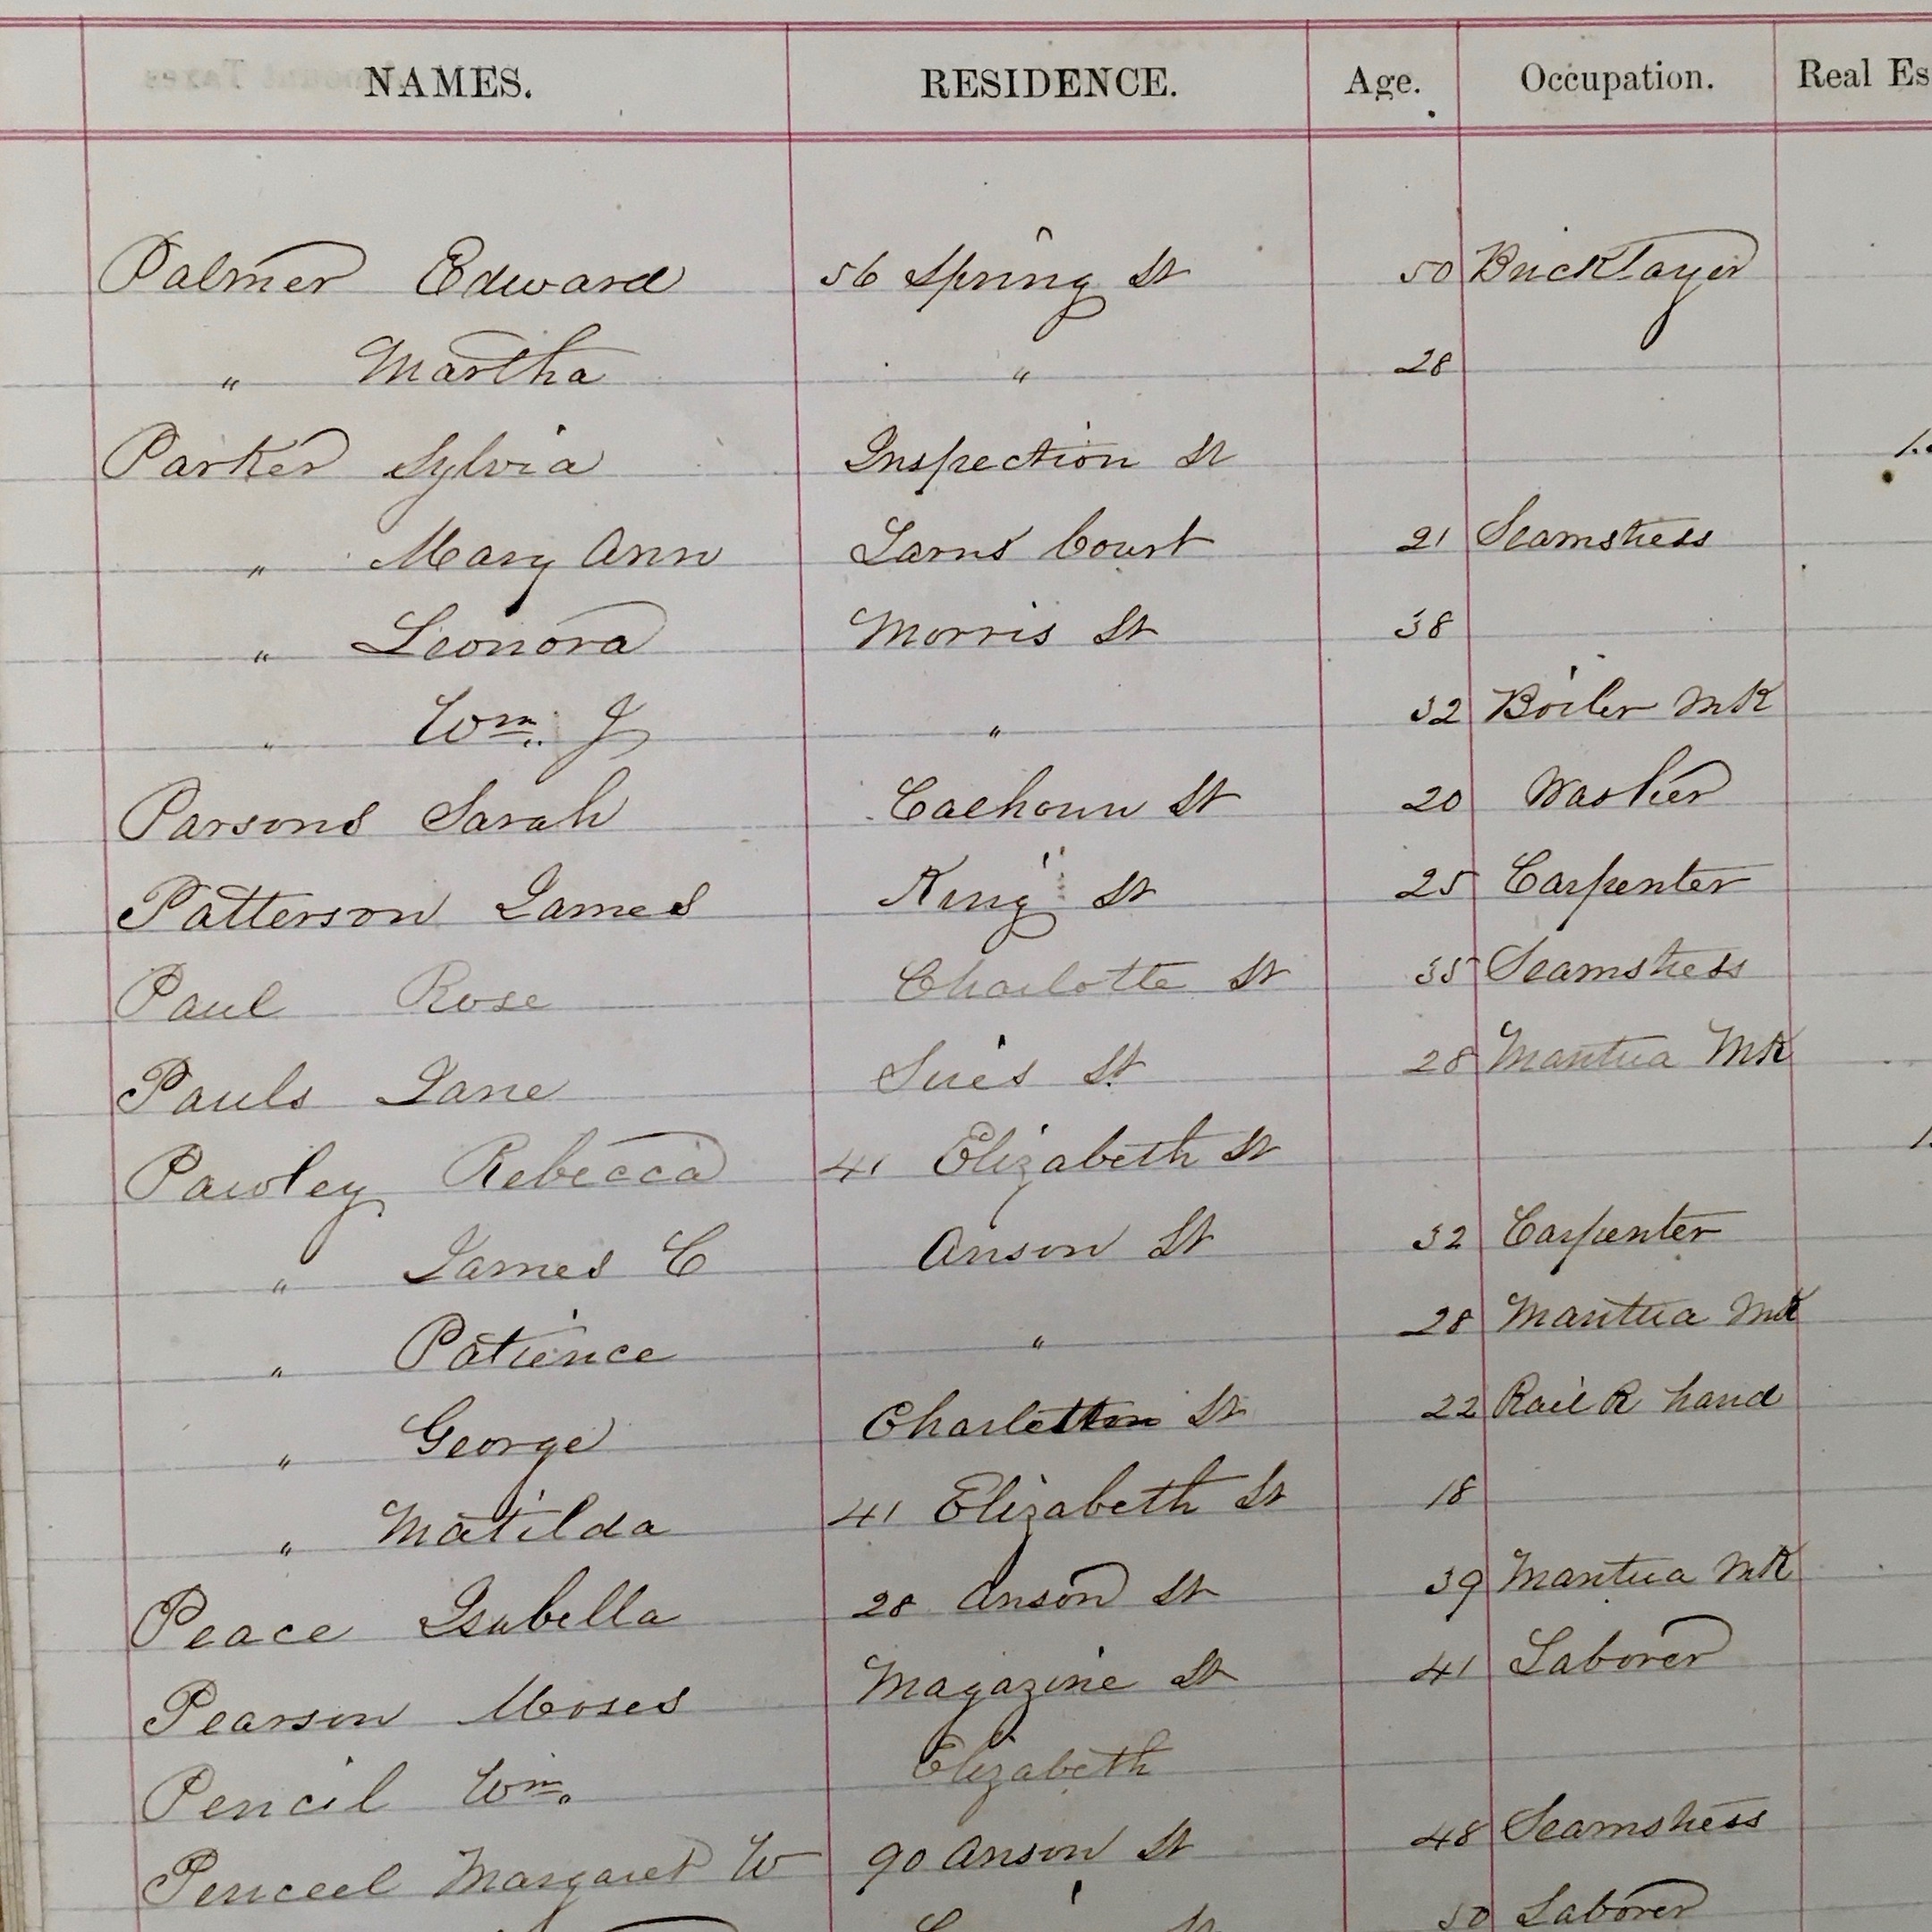 NAMES. RESIDENCE. Age. Occupation. Real Es
Palmer Edward 56 Spring St 50 Bricklayer
" Martha " 28
Parker Sylvia Inspection St
" Mary Ann Court 21 Seamstress
" Leonora Morris St 38
" Wm. J " 32 Boiler MK
Parsons Sarah Calhoun St 20 Washer
Patterson James King St 25 Carpenter
Paul Rose Charlotte St 35 Seamstress
Pauls Jane St 28 Mantua MK
Pawley Rebecca 41 Elizabeth St
" James C Anson St 32 Carpenter
" Patience " 28 Mantua MK
" George St 22 Rail R hand
" Matilda 41 Elizabeth St 18
Peace Isabella 28 Anson St 39 Mantua MK
Pearson Moses Magazine St 41 Laborer
Pencil Wm. Elizabeth
Penceel Margaret W 90 Anson St 48 Seamstress
50 Laborer